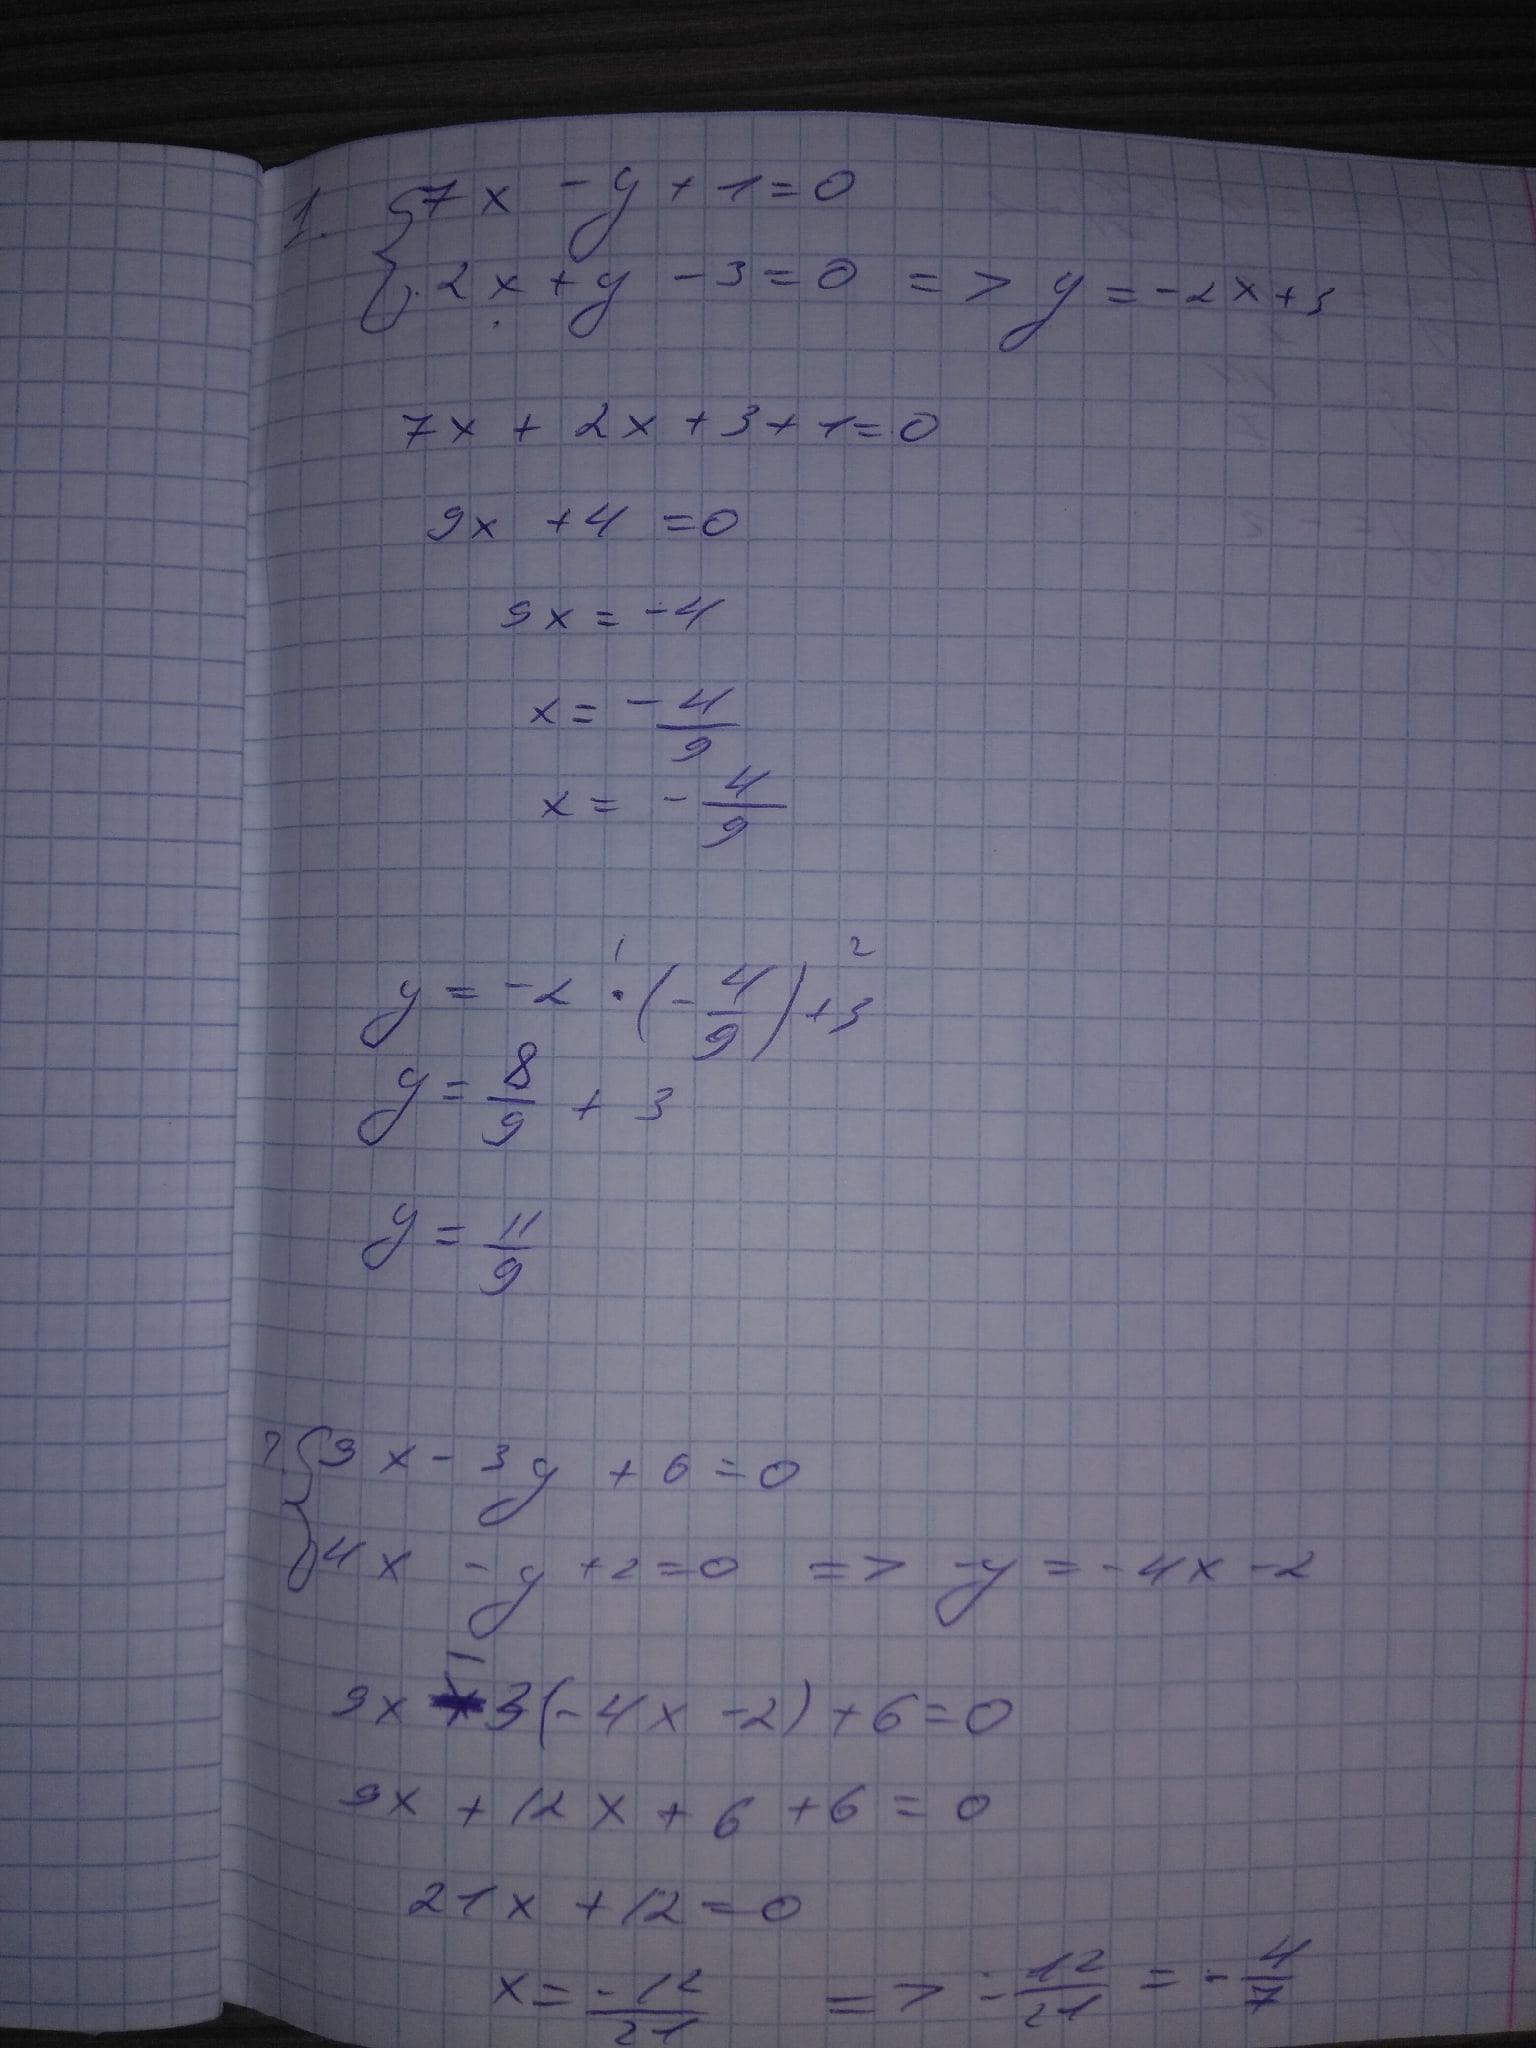 1. { 7x - y + 1 = 0
2x + y - 3 = 0 => y = -2x + 3
7x + 2x + 3 + 1 = 0
9x + 4 = 0
9x = -4
x = -4/9
x = - 4/9
1 2
y = -2 · (- 4/9) + 3
y = 8/9 + 3
y = 11/9
2. { 9x - 3y + 6 = 0
4x - y + 2 = 0 => -y = -4x - 2
9x - 3(-4x - 2) + 6 = 0
9x + 12x + 6 + 6 = 0
21x + 12 = 0
x = -12/21 => - 12/21 = - 4/7